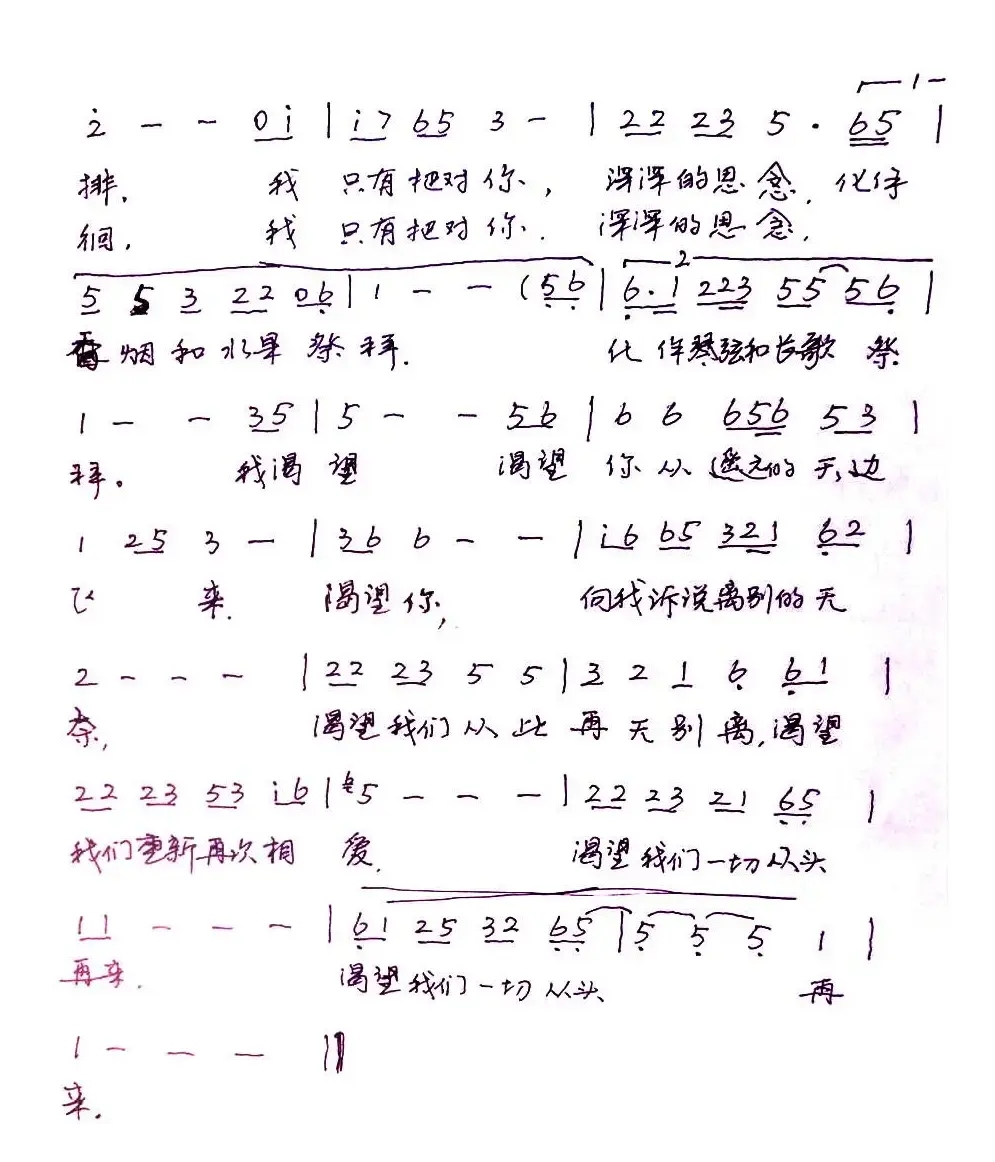 i̇ - - 0 i̇ | i̇ 7 6 5 3 - | 2 2 2 3 5 · 6 5 |
排, 我 只有把对你, 深深的思念, 化作
徊, 我 只有把对你. 深深的思念,
5 5 3 2 2 0 6 | 1 - - ( 5 6 | 6 · 1 2 2 3 5 5 5 6 |
香烟和水果祭拜. 化作琴弦和长歌 祭
1 - - 3 5 | 5 - - 5 6 | 6 6 6 5 6 5 3 |
拜。 我渴望 渴望 你从遥远的天边
1 2 5 3 - | 3 6 6 - - | i̇ 6 6 5 3 2 1 6 2 |
飞 来. 渴望你, 向我诉说离别的无
2 - - - | 2 2 2 3 5 5 | 3 2 1 6 6 1 |
奈, 渴望我们从此再无别离,渴望
2 2 2 3 5 3 i̇ 6 | 5 - - - | 2 2 2 3 2 1 6 5 |
我们重新再次相 爱. 渴望我们一切从头
1 1 - - - | 6 1 2 5 3 2 6 5 | 5 5 5 1 |
再来. 渴望我们一切从头 再
1 - - - ‖
来.